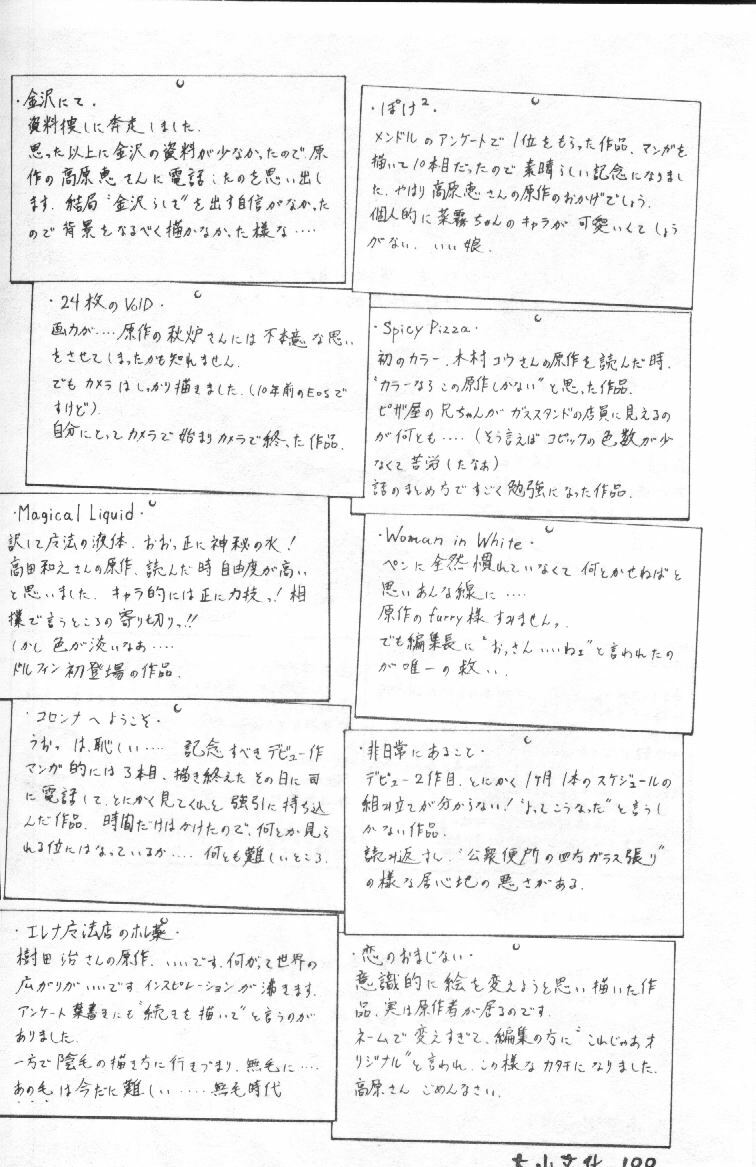 ・金沢にて・
資料捜しに奔走しました.
思った以上に金沢の資料が少なかったので、原
作の高原恵さんに電話したのを思い出し
ます. 結局“金沢らしさ”を出す自信がなかった
ので背景をなるべく描かなかった様な‥‥
・ぽけ²・
メンドルのアンケートで1位をもらった作品、マンガを
描いて10本目だったので素晴らしい記念になりまし
た. やはり高原恵さんの原作のおかげでしょう.
個人的に菜霧ちゃんのキャラが可愛いくてしょう
がない. いい娘.
・24枚のVOID・
画力が‥‥原作の秋炉さんには不本意な思い
をさせてしまったかも知れません.
でもカメラはしっかり描きました.(10年前のEOSで
すけど).
自分にとってカメラで始まりカメラで終った作品.
・Spicy Pizza・
初のカラー. 木村コウさんの原作を読んだ時、
“カラーならこの原作しかない”と思った作品.
ピザ屋の兄ちゃんがガススタンドの店員に見えるの
が何とも‥‥(そう言えばコピックの色数が少
なくて苦労したなぁ)
話のまとめ方ですごく勉強になった作品.
・Magical Liquid・
訳して魔法の液体. おおっ正に神秘の水!
高田和えさんの原作、読んだ時自由度が高い
と思いました. キャラ的には正に力技っ! 相
撲で言うところの寄り切りっ!!
しかし色が淡いなぁ‥‥
ドルフィン初登場の作品.
・Woman in White・
ペンに全然慣れていなくて何とかせねばと
思いあんな線に‥‥
原作のfurry様すみませんっ.
でも編集長に“おっさんいいねェ”と言われたの
が唯一の救い.
・コロンナへようこそ・
うおっは、恥しい‥‥ 記念すべきデビュー作
マンガ的には3本目、描き終えたその日に司
に電話して、とにかく見てくれと強引に持ち込
んだ作品. 時間だけはかけたので、何とか見ら
れる位にはなっているが‥‥何とも難しいところ.
・非日常にあること・
デビュー2作目. とにかく1ヶ月1本のスケジュールの
組み立てが分からない! “よってこうなった”と言うし
かない作品.
読み返すし、“公衆便所の四方ガラス張り”
の様な居心地の悪さがある.
・エレナ魔法店のホレ薬・
樹田治さんの原作. いいです. 何がって世界の
広がりがいいです. インスピレーションが沸きます.
アンケート葉書きにも“続きを描いて”と言うのが
ありました.
一方で陰毛の描き方に行きづまり、無毛に‥‥
あの毛は今だに難しい‥‥‥無毛時代
・恋のおまじない・
意識的に絵を変えようと思い描いた作
品. 実は原作者が居るのです.
ネームで変えすぎて、編集の方に“これじゃあオ
リジナル”と言われ、この様なカタチになりました.
高原さん ごめんなさい.